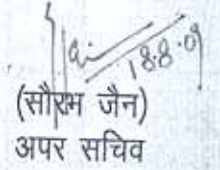 18.8.09
(सौरभ जैन)
अपर सचिव